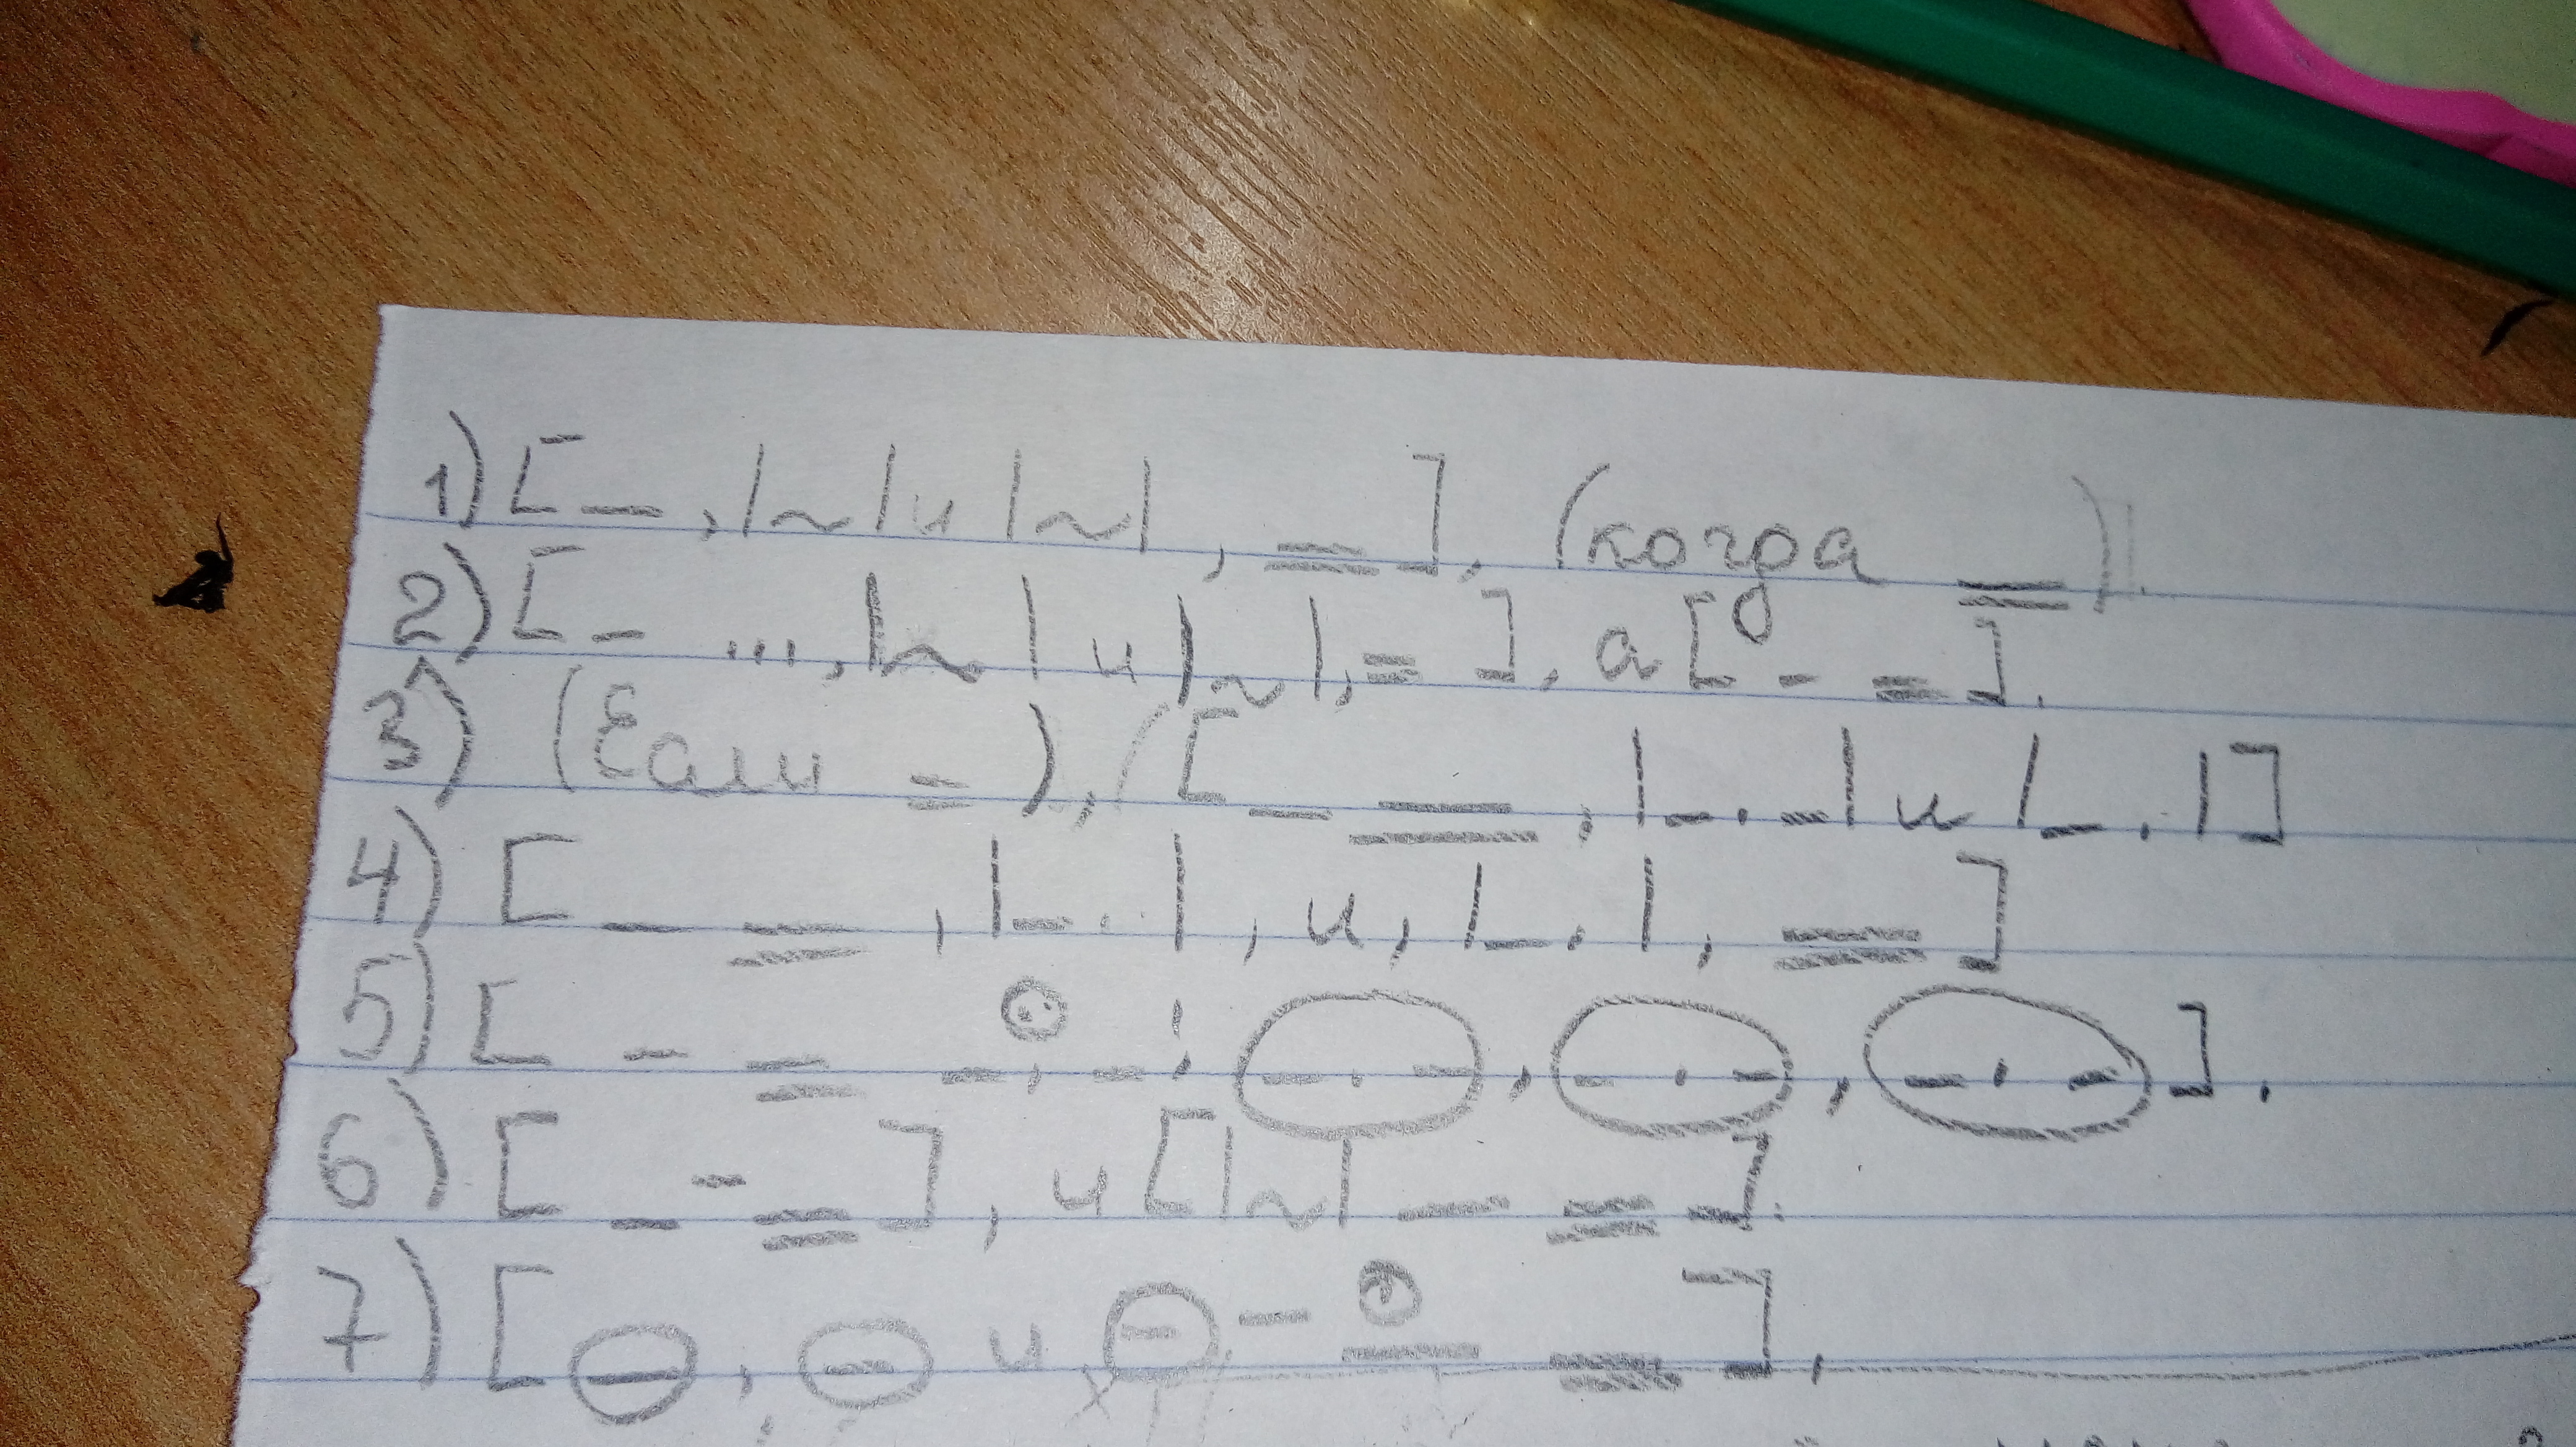 1) [ — , |~| и |~| , = ], (когда = ).
2) [ - ..., |~| и |~|, = ], а [ - = ].
3) (Если = ), [ — = , |_._| и |_.| ]
4) [ — = , |_.| , и, |_.| , = ]
5) [ - = _, _ : _._ , _._ , _._ ].
6) [ _ - = ], и [ |~| — = ].
7) [ — , — и — - = = ],